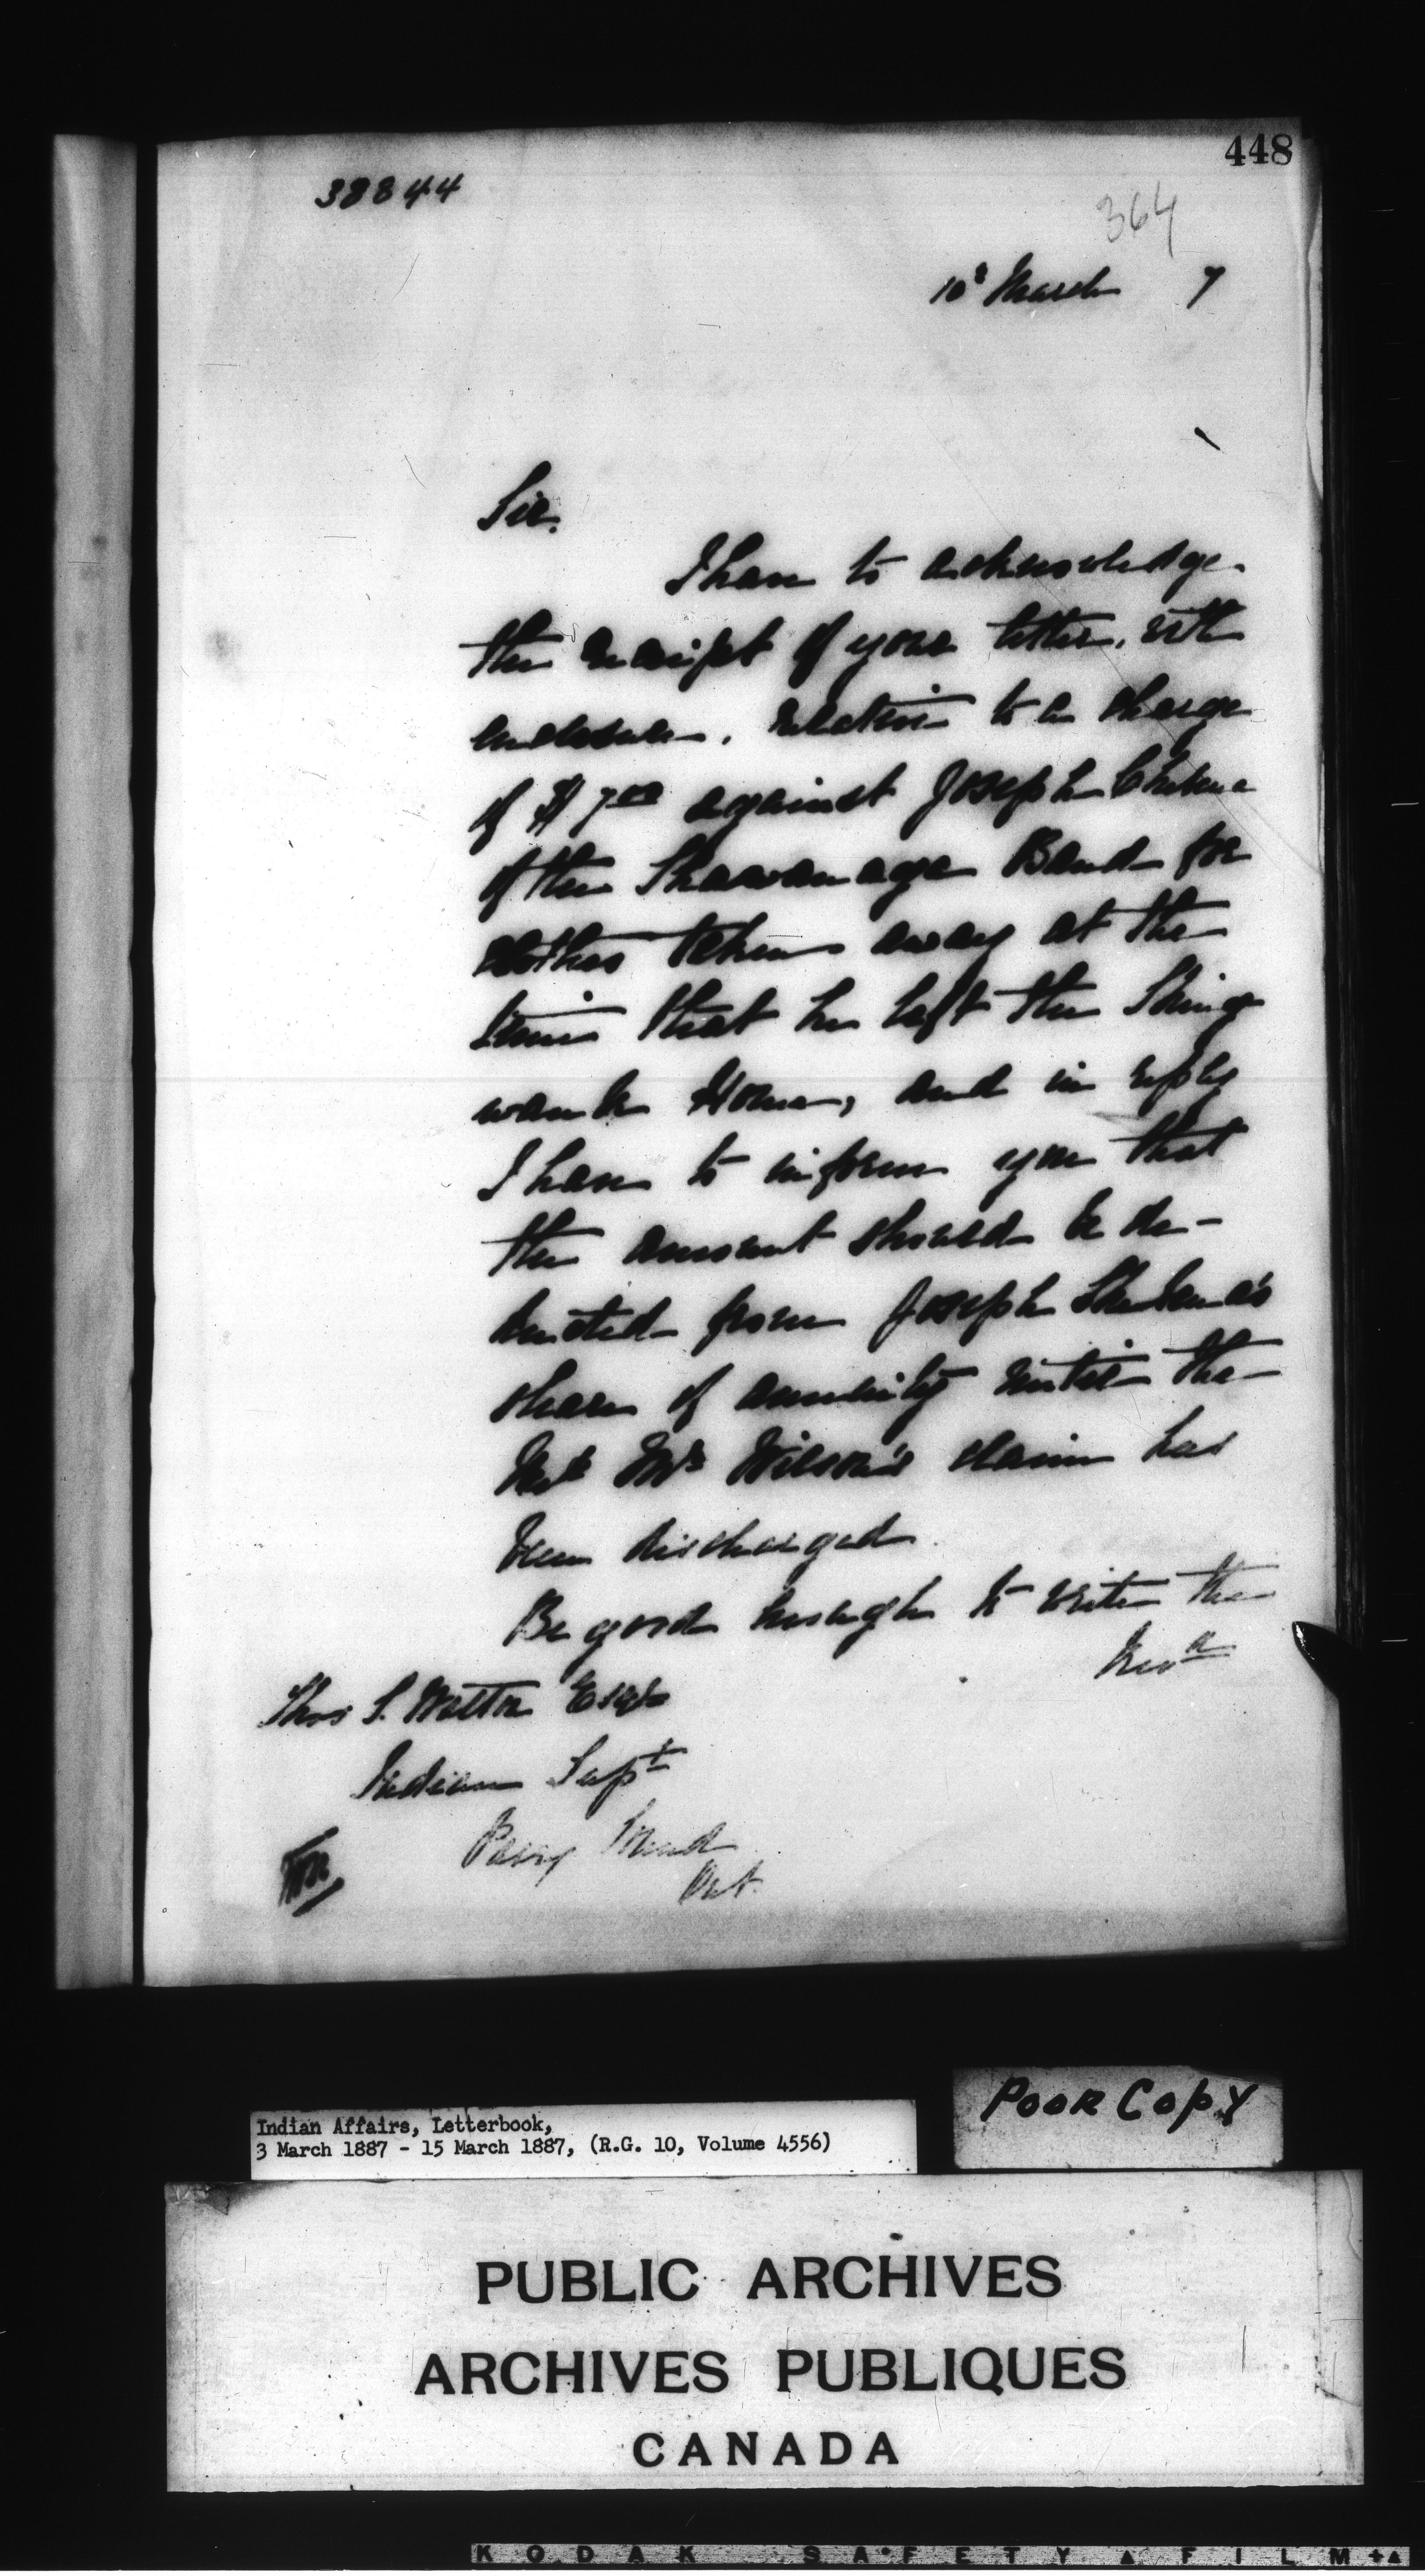 448
38844
364
10th March 7
Sir,
I have to acknowledge
the receipt of your letter, with
enclosure, relative to a charge
of $7.00 against Joseph
of the Shawanaga Band for
clothes taken away at the
time that he left the Shing
wauk Home, and in reply
I have to inform you that
the amount should be de-
ducted from Joseph
share of annuity until the
Revd Mr Wilson's claim has
been discharged.
Be good enough to write the
Revd
Thos S. Walton Esqr
Indian Supt
Parry Sound
Ont.
POOR COPY
Indian Affairs, Letterbook,
3 March 1887 - 15 March 1887, (R.G. 10, Volume 4556)
PUBLIC ARCHIVES
ARCHIVES PUBLIQUES
CANADA
KODAK SAFETY FILM